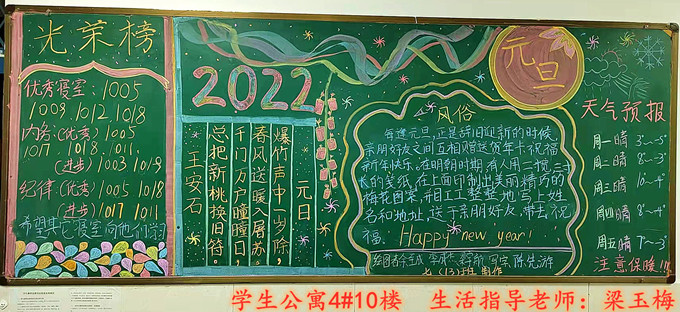 光荣榜
优秀寝室:1005
1009.1012.1018
内务:(优秀)1005
1017 1018.1011.
(进步)1003 1018
纪律:(优秀)1005 1018
(进步)1017 1011
希望其它寝室向他们学习
2022
元日
爆竹声中一岁除,
春风送暖入屠苏。
千门万户曈曈日,
总把新桃换旧符。
王安石
元旦
风俗
每逢元旦,正是辞旧迎新的时候,
亲朋好友之间互相赠送贺年卡祝福
新年快乐。在明朝时期,有人用二揽三寸
长的笺纸,在上面印制出美丽精巧的
梅花图案,并且工工整整地写上姓
名和地址,送于亲朋好友,带去祝
福。Happy new year!
七(13)班 制作
天气预报
周一晴 3°~5°
周二晴 8°~3°
周三晴 10°~4°
周四晴 8°~4°
周五晴 7°~3°
注意保暖!!!
学生公寓4#10楼 生活指导老师:梁玉梅